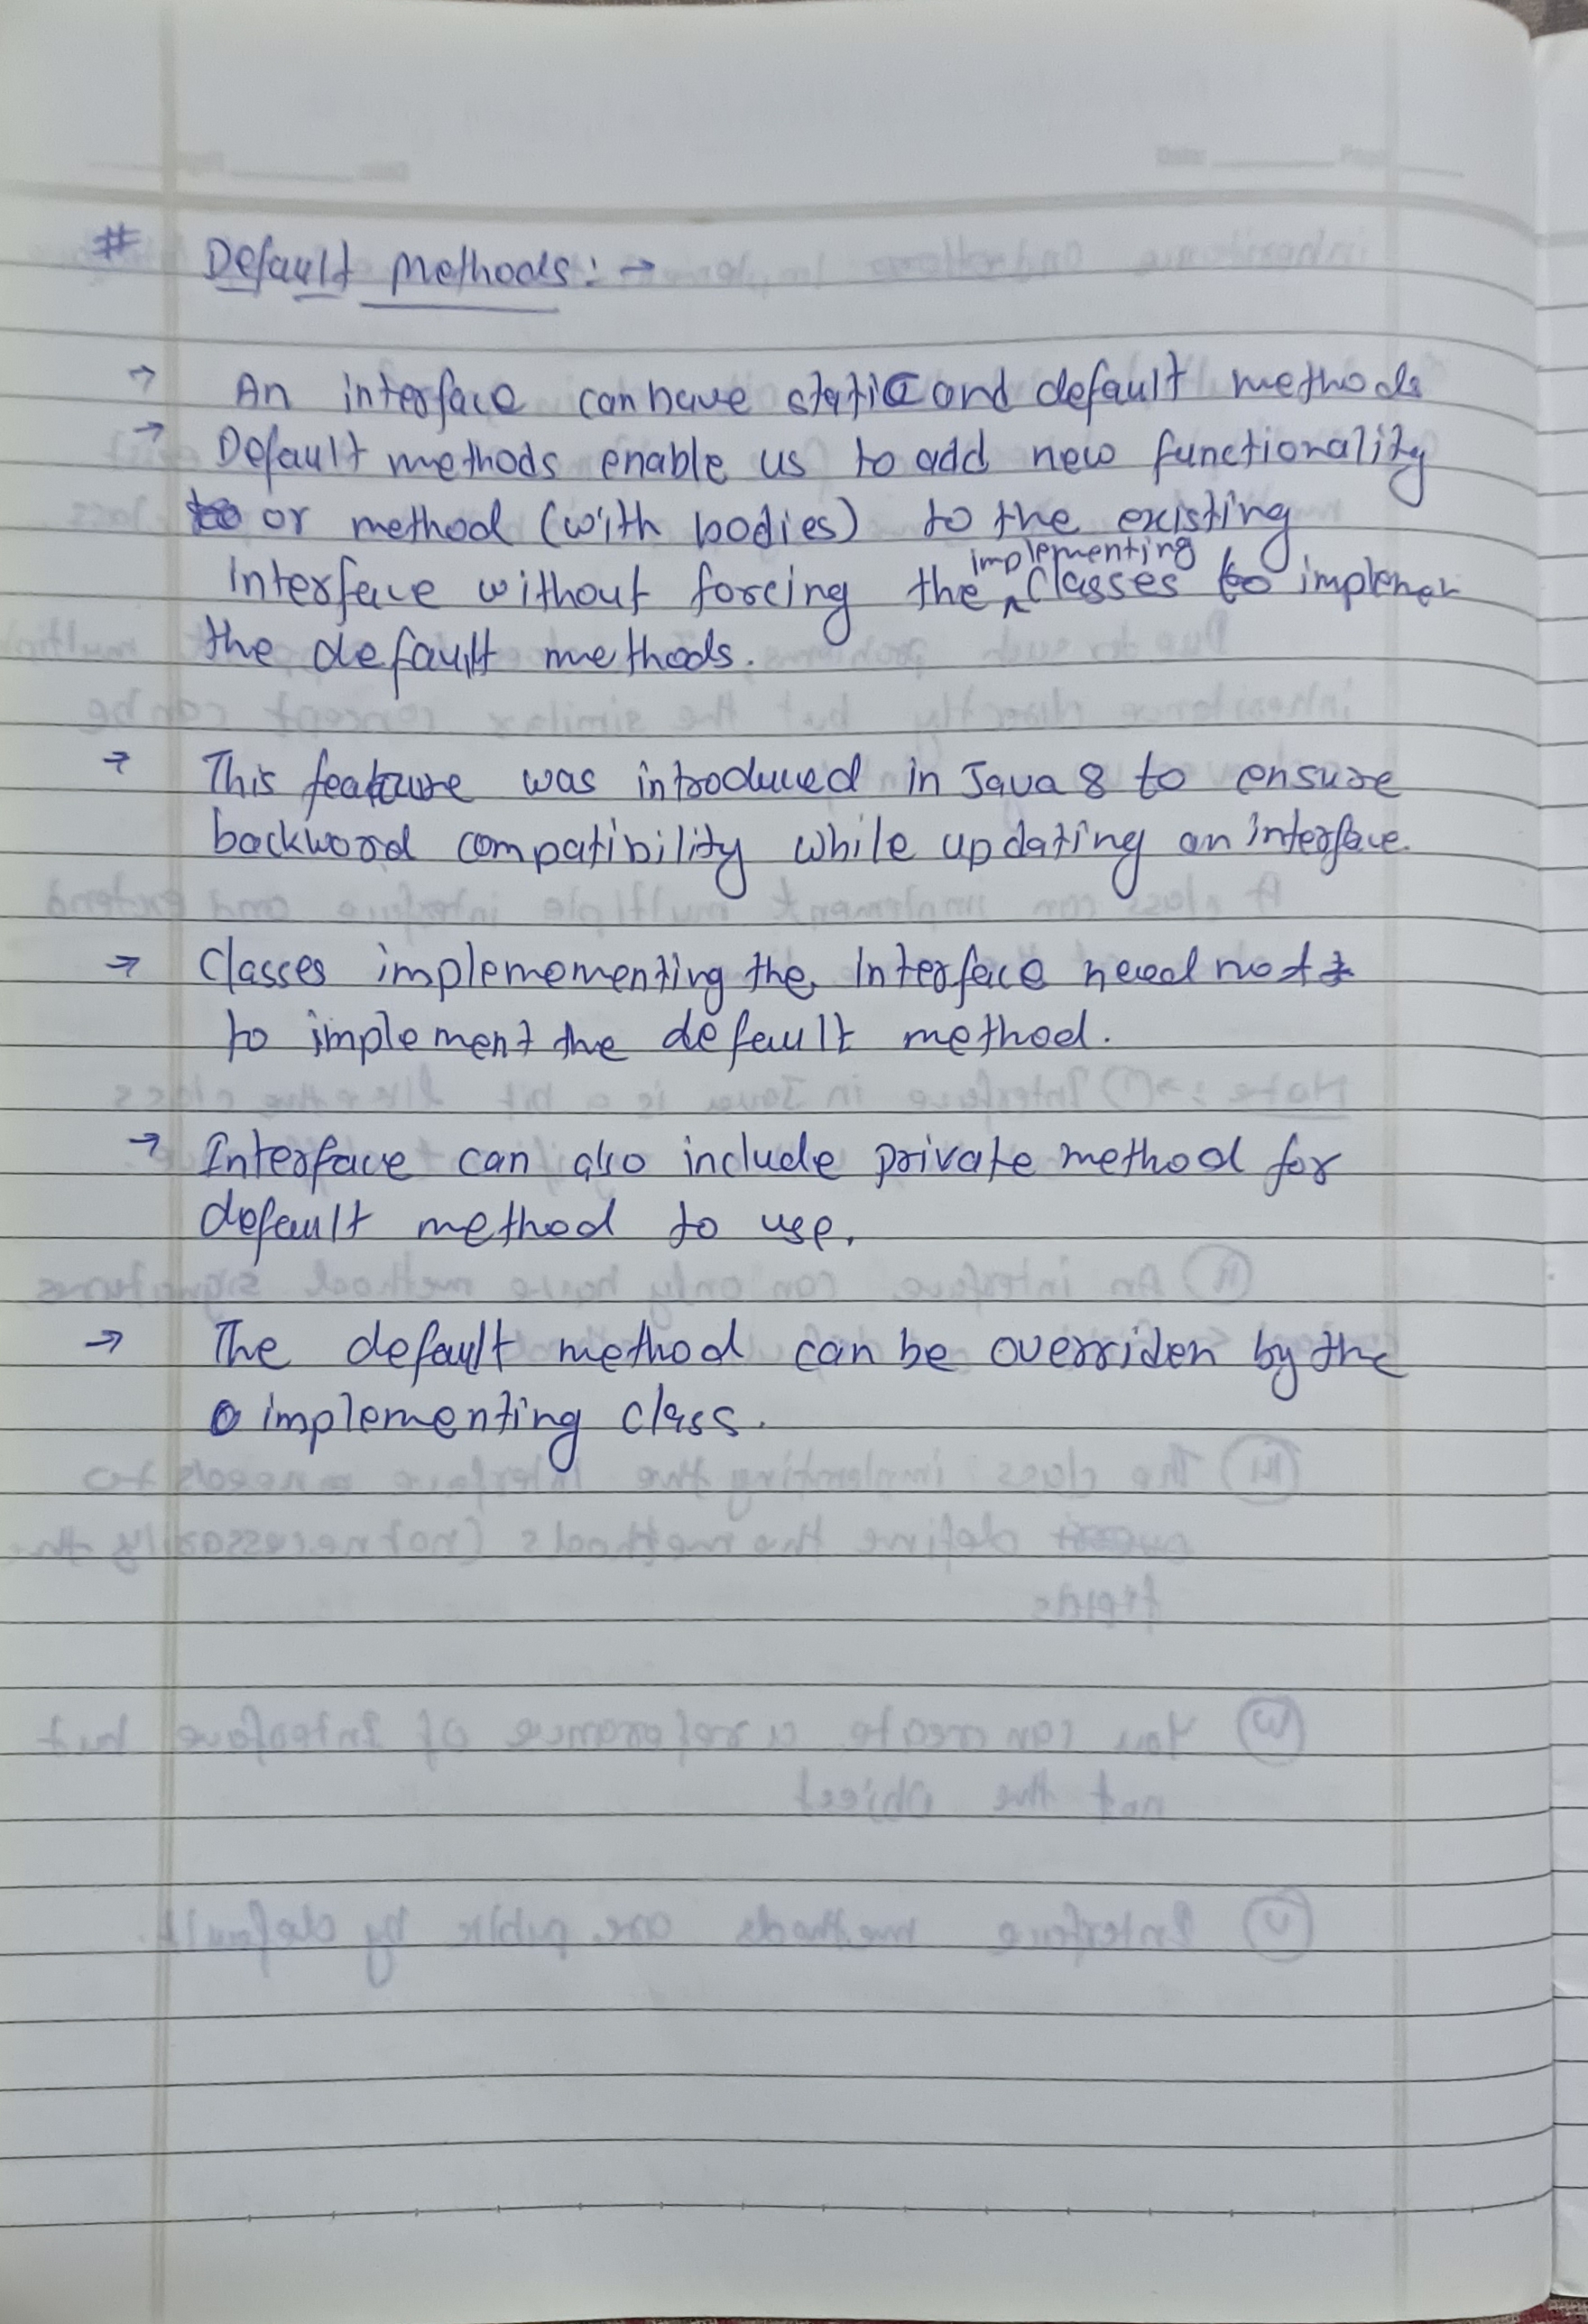 # Default Methods : →
→ An interface can have static and default methods
→ Default methods enable us to add new functionality
or method (with bodies) to the existing
interface without forcing the implementing classes to implemen
the default methods.
→ This feature was introduced in Java 8 to ensure
backward compatibility while updating an interface.
→ Classes implemementing the Interface need not
to implement the default method.
→ Interface can also include private method for
default method to use.
→ The default method can be overriden by the
implementing class.